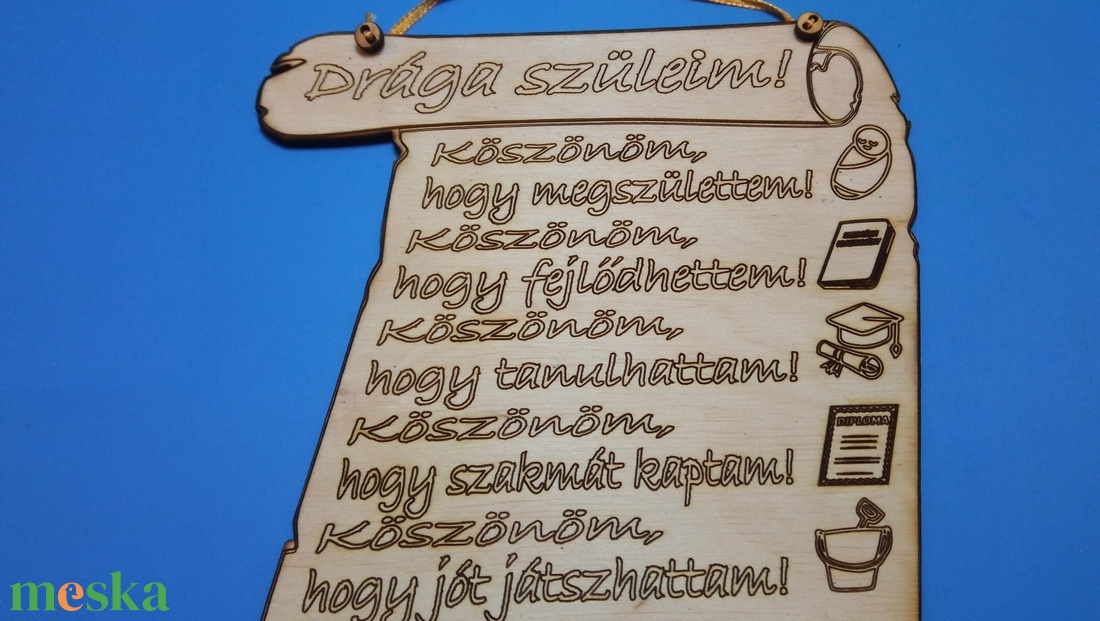 Drága szüleim!
Köszönöm,
hogy megszülettem!
Köszönöm,
hogy fejlődhettem!
Köszönöm,
hogy tanulhattam!
Köszönöm,
DIPLOMA
hogy szakmát kaptam!
Köszönöm,
hogy jót játszhattam!
meska